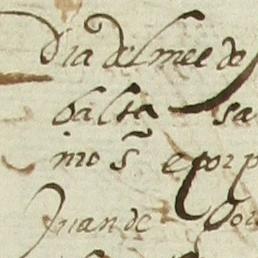 Dia del mes de
balta sa
mos e por p
Juan de